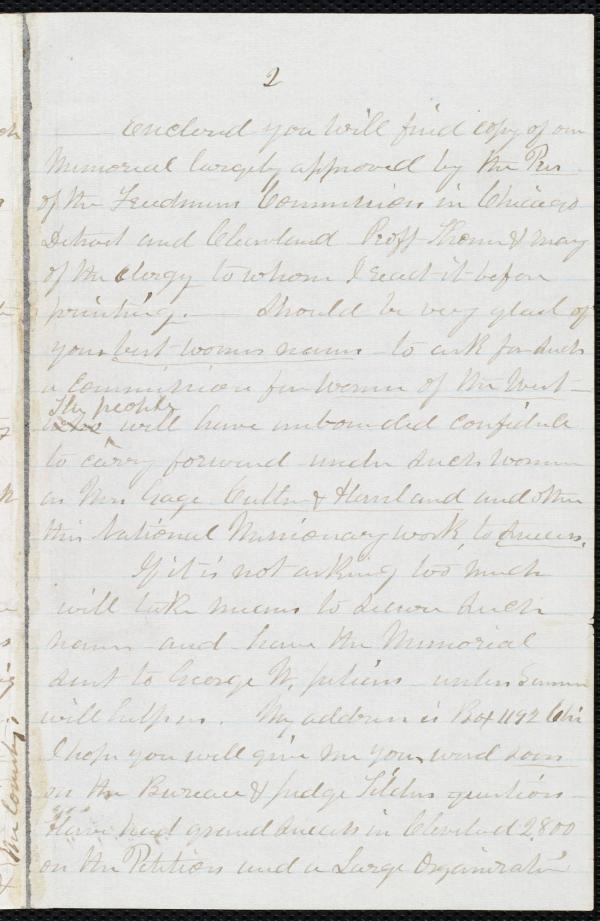 2
Enclosed you will find copy of our
Memorial largely approved by the Pres
of the Freedmens Commission in Chicago
Detroit and Cleveland Proff Thome & many
of the clergy to whom I read it before
printing. — Should be very glad of
your best womens names to ask for such
a Commission for Women of the West —
The people
will have unbounded confidence
to carry forward under such women
as Mrs Gage Cutler & Haviland and other
this National Missionary work to success.
If it is not asking too much
will take means to secure such
names and have the Memorial
sent to George W. Julian unless Sumner
will help us. My address is Box 1192 Chi
I hope you will give me your word soon
on the Bureau & Judge Tildens questions —
Have had grand success in Cleveland 2800
on the Petitions and a Large Organizatn